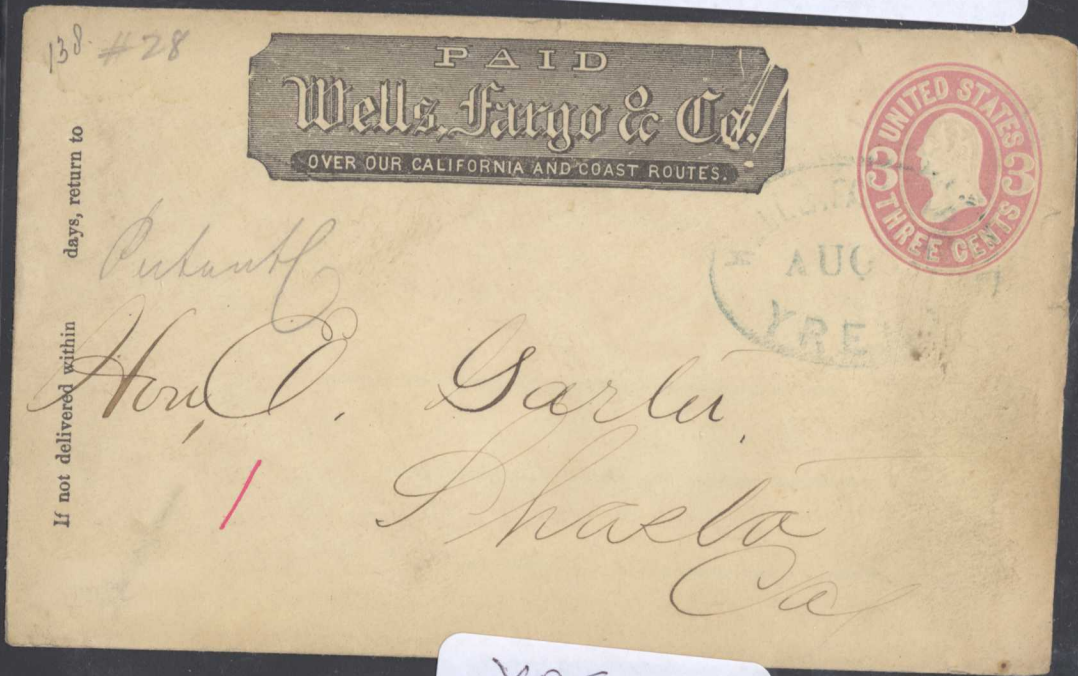 138 #28
PAID
Wells, Fargo & Co.
OVER OUR CALIFORNIA AND COAST ROUTES.
UNITED STATES
3 3
THREE CENTS
AUG
YREKA
If not delivered within days, return to
Hon, E. Garter,
Shasta
Ca